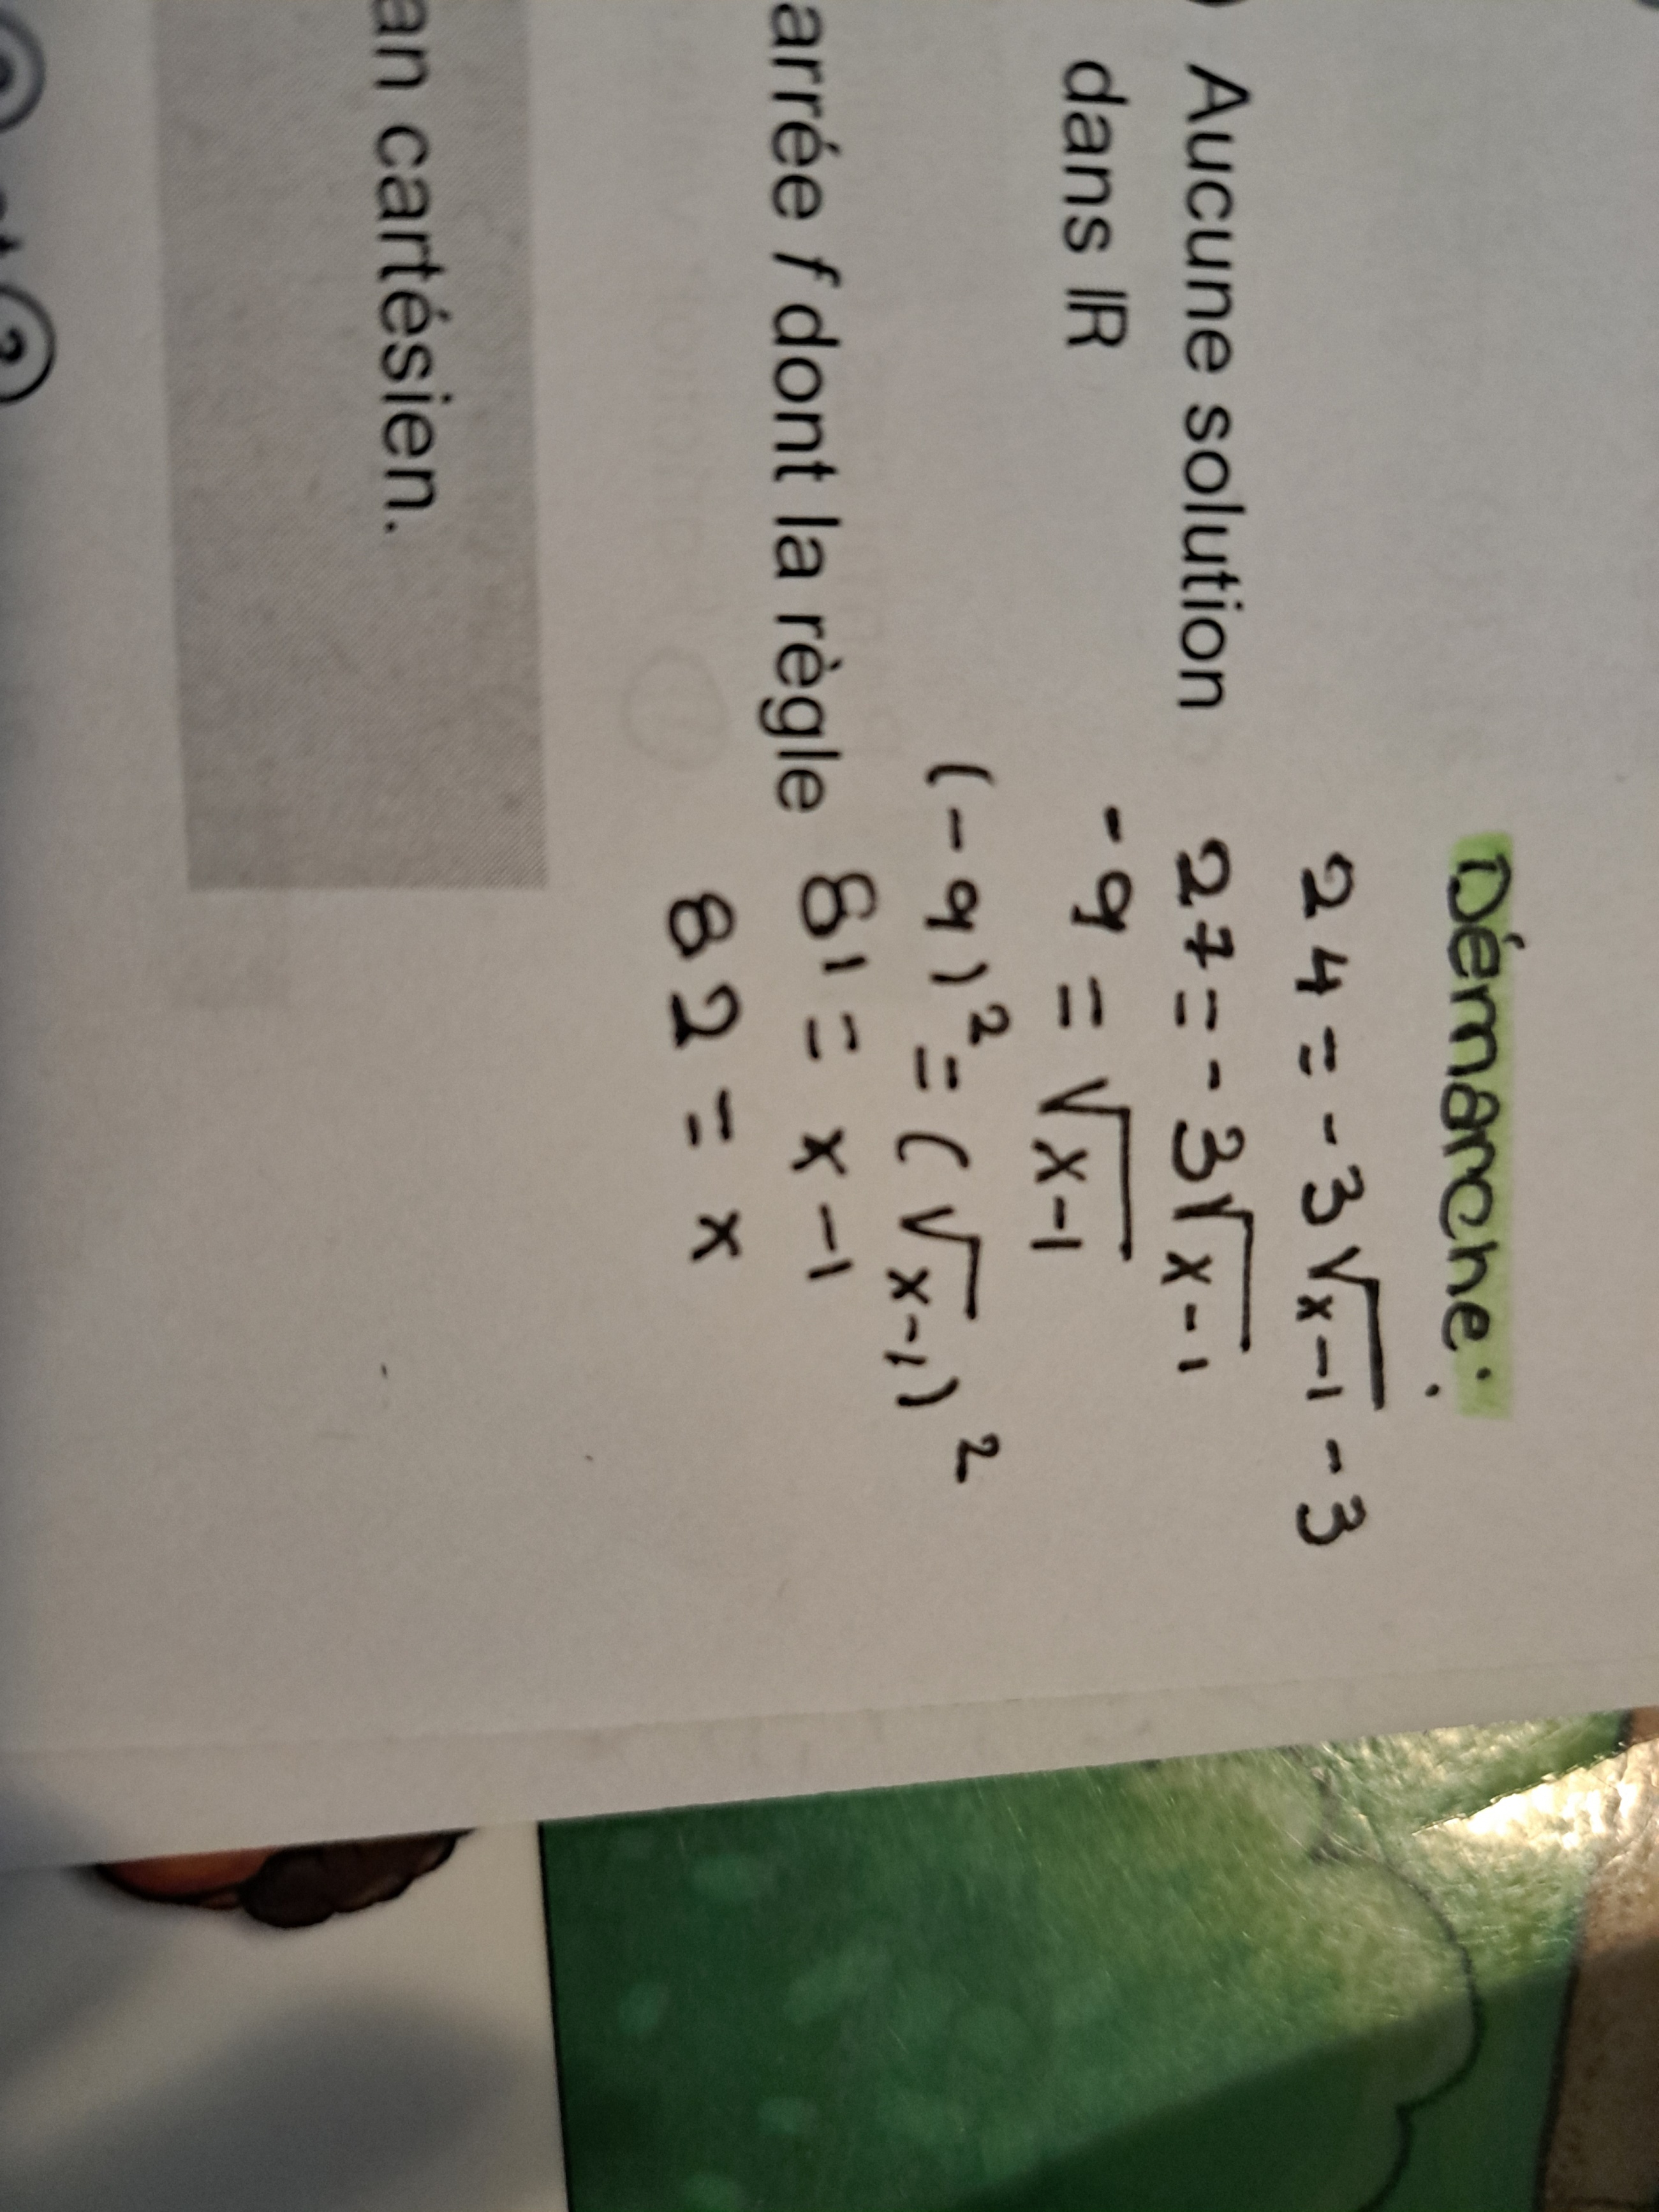 Démarche:
24 = -3√x-1 - 3
) Aucune solution 27 = -3√x-1
dans IR -9 = √x-1
(-9)² = (√x-1)²
arrée f dont la règle 81 = x-1
82 = x
an cartésien.